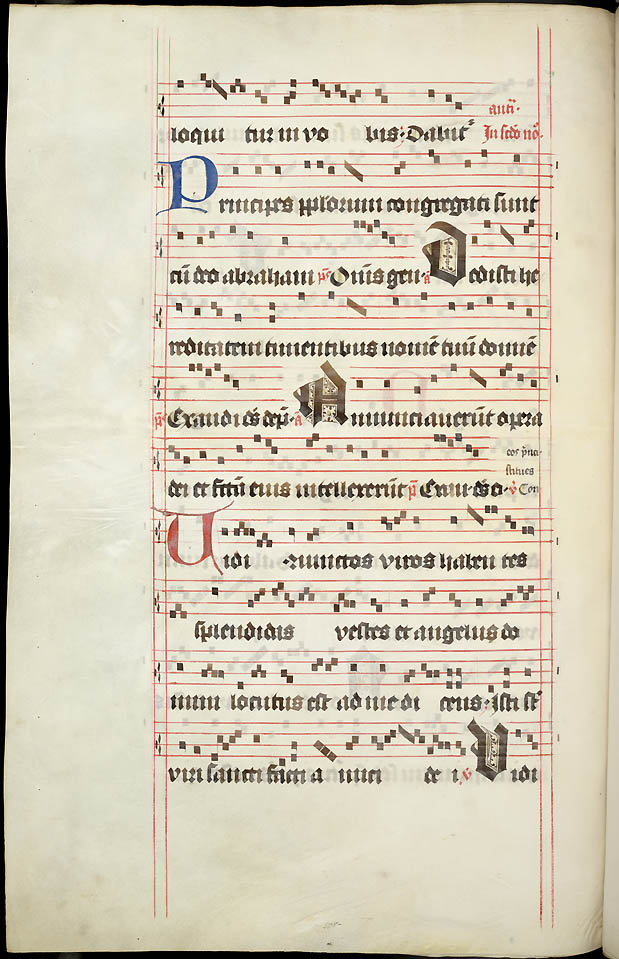 loqui tur in vo bis· Dabit᷑ antī·
In scdo no͞·
Principes pplorum congregati sunt
cū deo abraham ps̄ Om̄s gen· a Dedisti he
reditatem timentibus nomē tuū domine
ps̄ Exaudi ds̄ dep̄· a Annunciaverūt opera
dei et fctā eius intellexerūt p̄ Exau· ds̄ o· ℣ Con
stitues
eos prīci
Vidi coniunctos viros haben tes
splendidas vestes et angelus do
mini locutus est ad me di cens· Isti st̄
viri sancti facti a mici de i ℣ Vidi